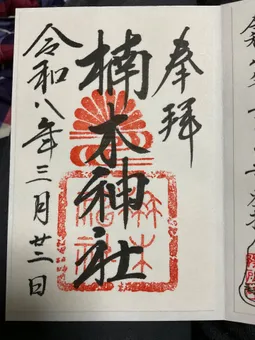 奉拝
楠木神社
令和八年三月廿二日